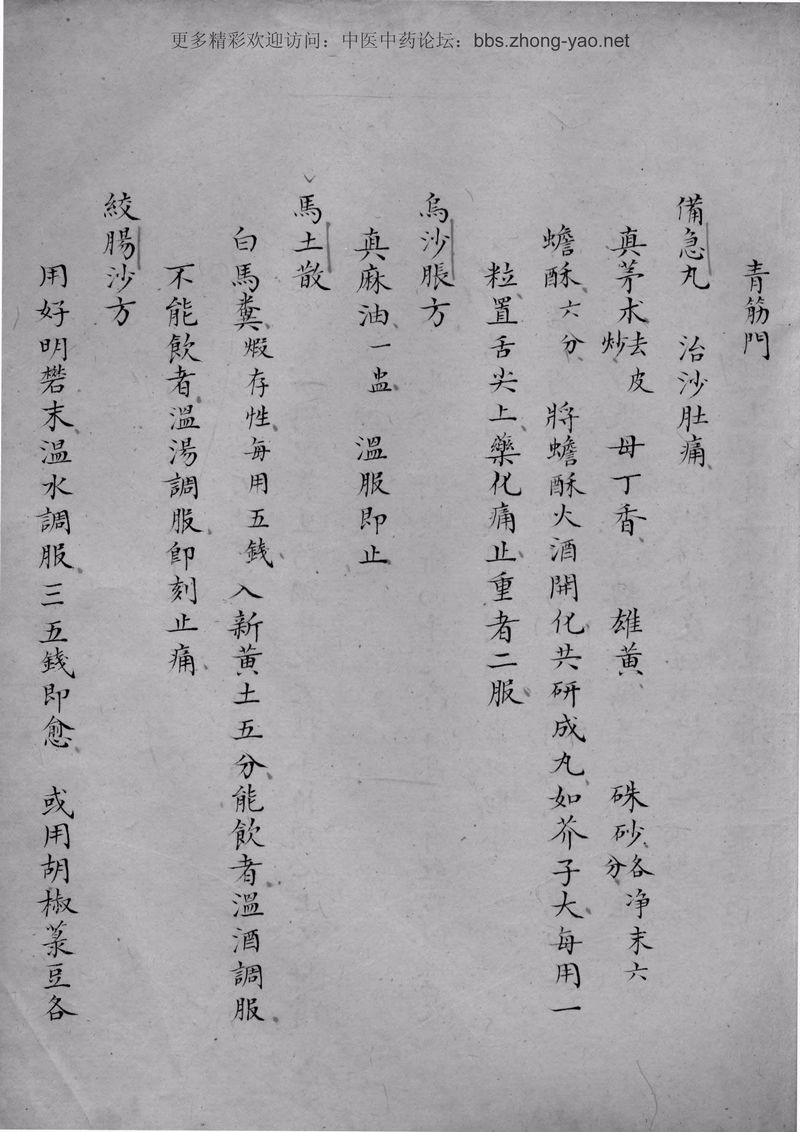 更多精彩欢迎访问：中医中药论坛：bbs.zhong-yao.net
青筋門
備急丸　治沙肚痛
真茅术去皮炒　母丁香　雄黄　硃砂各净末六分
蟾酥六分　將蟾酥火酒開化共研成丸如芥子大每用一
粒置舌尖上藥化痛止重者二服
烏沙脹方
真麻油一盅　溫服即止
馬土散
白馬糞煆存性每用五錢入新黄土五分能飲者溫酒調服
不能飲者溫湯調服即刻止痛
絞腸沙方
用好明礬末溫水調服三五錢即愈　或用胡椒菉豆各